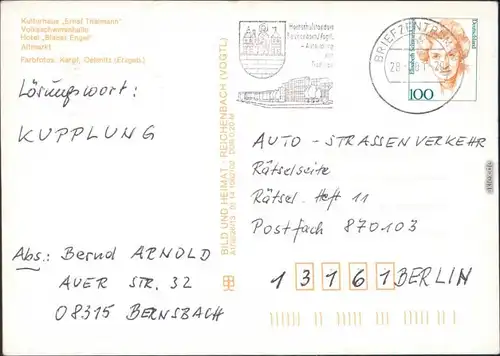 Kulturhaus „Ernst Thälmann"
Volksschwimmhalle
Hotel „Blauer Engel"
Altmarkt
Farbfotos: Kargf, Oelsnitz (Erzgeb.)
Lösungswort:
KUPPLUNG
Abs.: Bernd ARNOLD
AUER STR. 32
08315 BERNSBACH
BILD UND HEIMAT REICHENBACH (VOGTL)
BRIEFZENTRUM
Deutschland
100
AUTO-STRASSENVERKEHR
Rätselseite
Rätsel-Heft 11
Postfach 870103
13161 BERLIN